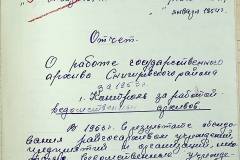 января 1966 г.
Отчет
О работе государственного
архива Снигиревского района
за 1965 г.
1. Контроль за работой
ведомственных архивов.
В 1965 г. в результате обследо
вания райгосархивом учреждений
предприятий и организаций,